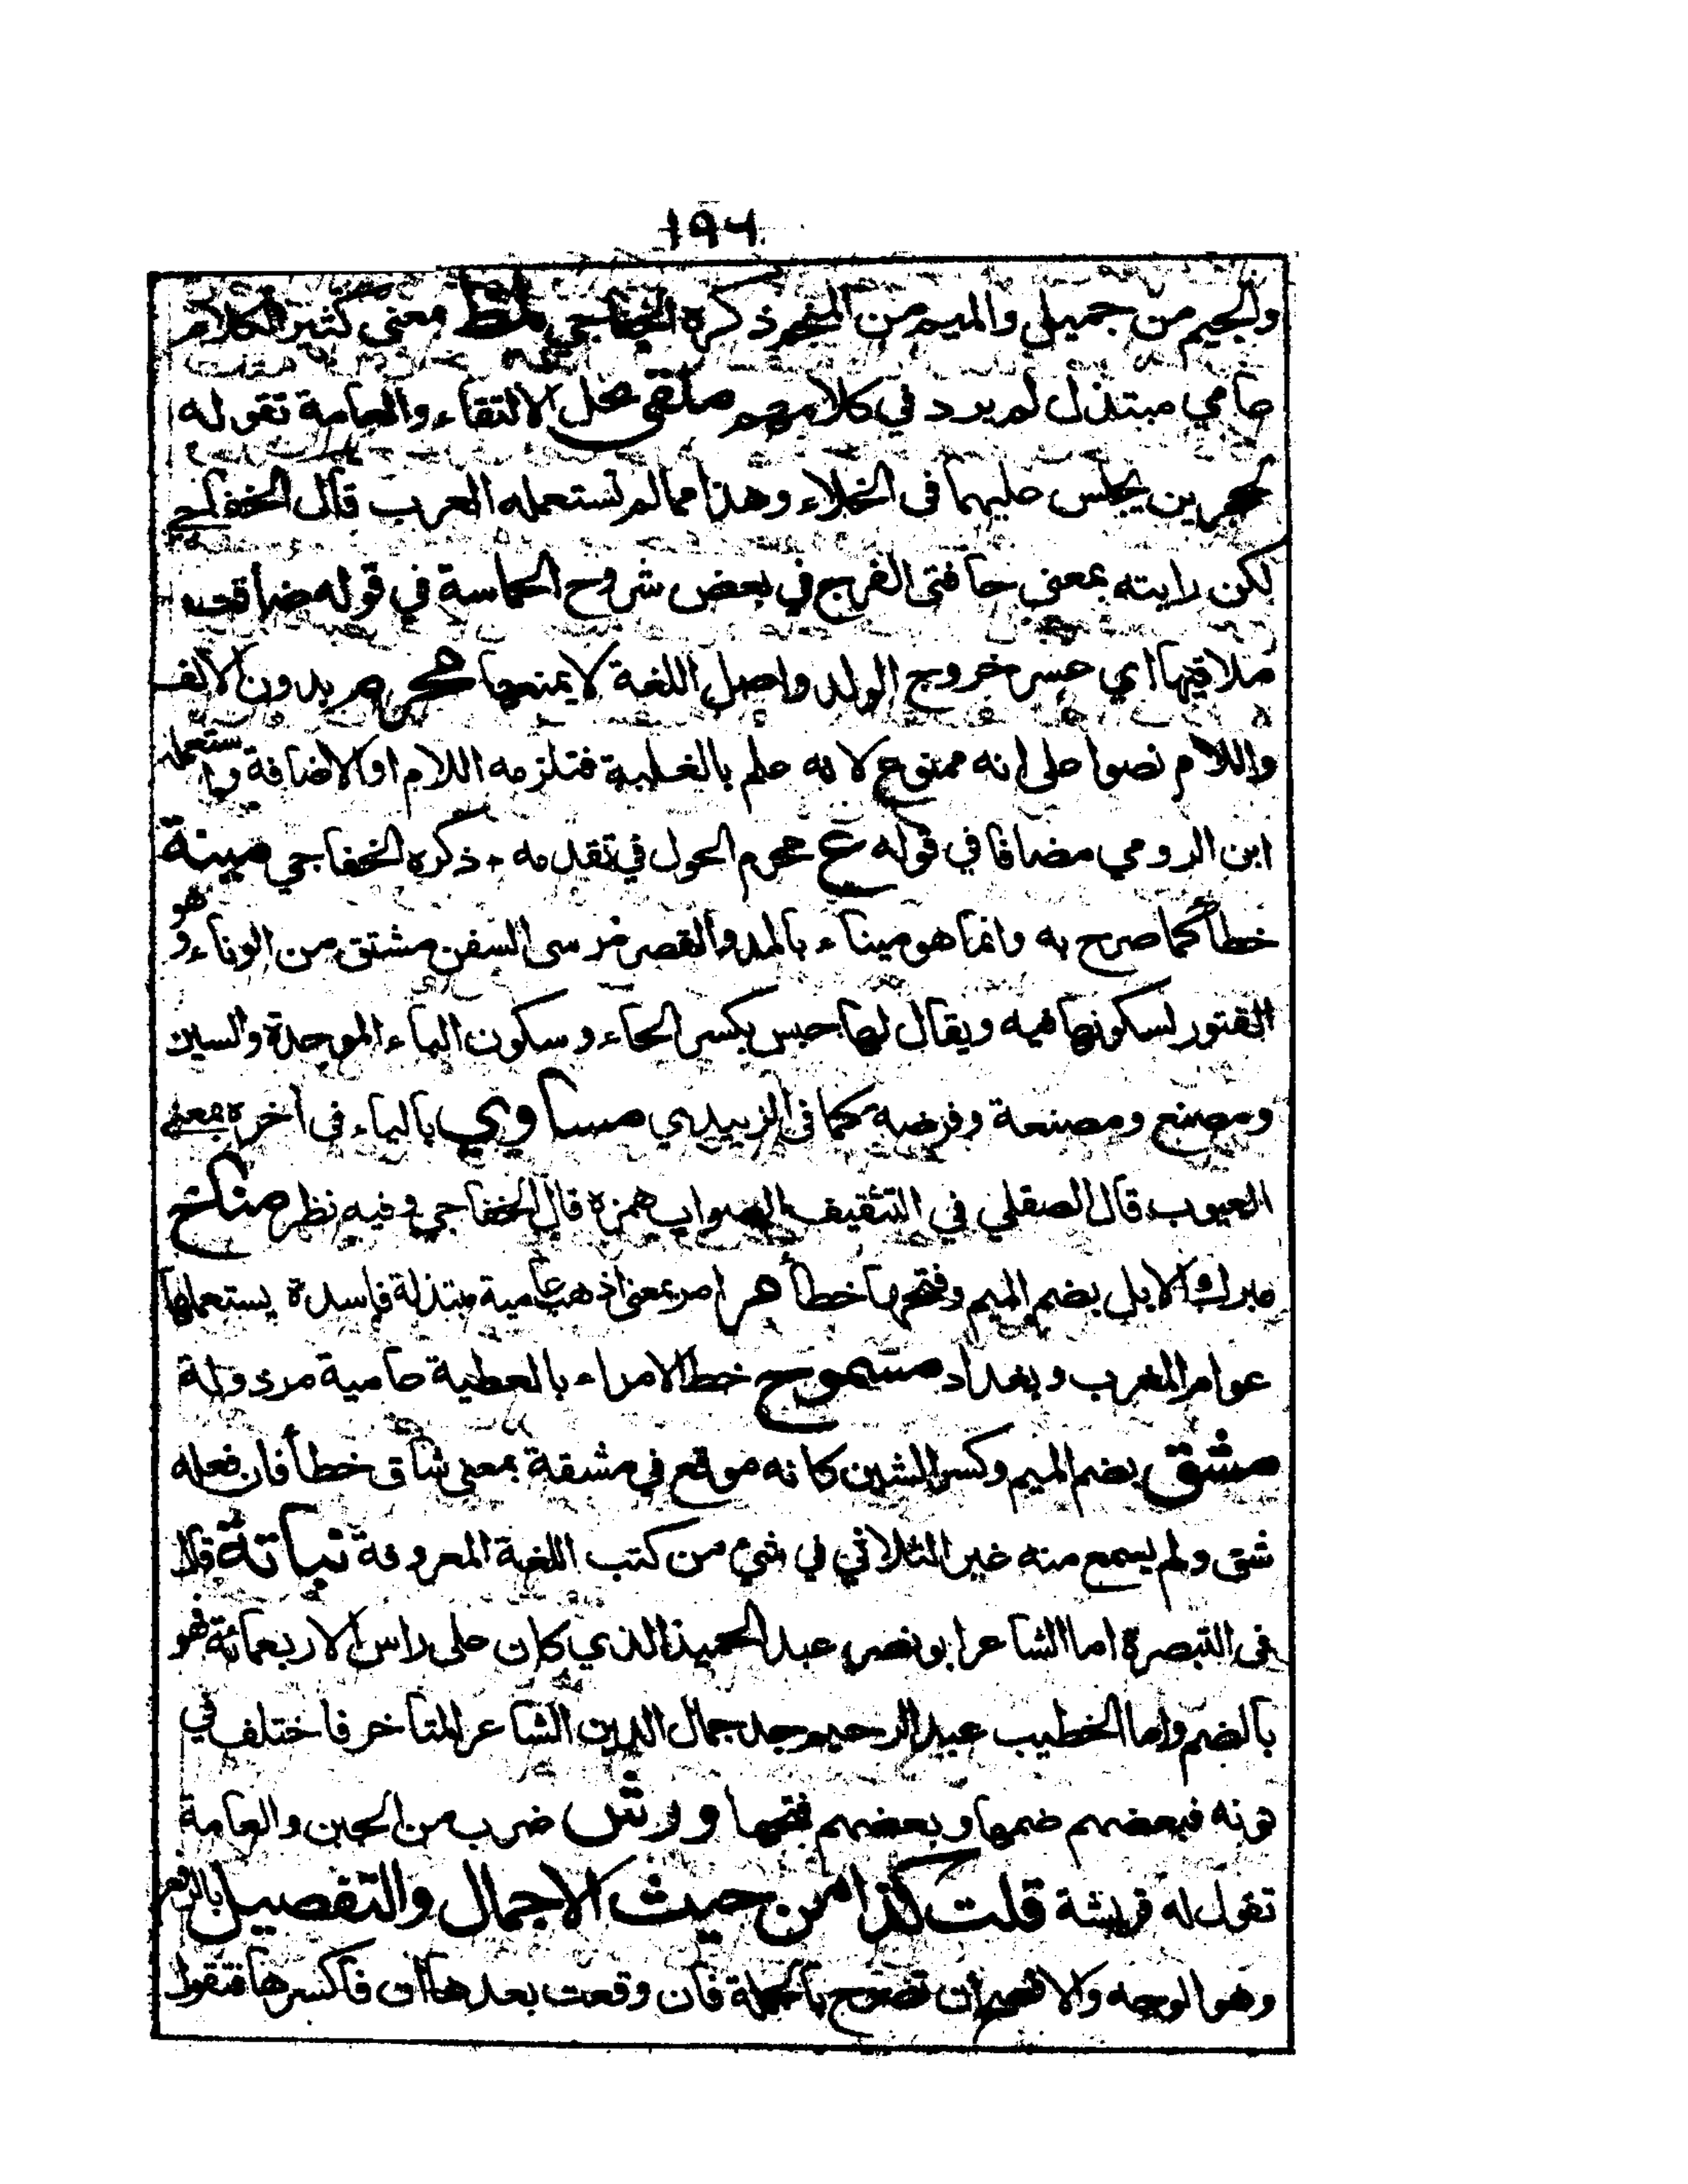 ١٩٦
والجيم من جميل والميم من المفخم ذكره الخفاجي ملط بمعنى كثير الكلام
عامي مبتذل لم يرد في كلامهم ملقى محل الالتقاء والعامة تقوله
لحجرين يجلس عليهما في الخلاء وهذا مما لم تستعمله العرب قال الخفاجي
لكن رايته بمعنى حافتى الفرج في بعض شروح الحماسة في قوله ضاقت
ملاقيها اي عسر خروج الولد واصل اللغة لا يمنعها محرم بدون الالف
واللام نصوا على انه ممنوع لانه علم بالغلبة فتلزمه اللام او الاضافة واستعمله
ابن الرومي مضافا في قوله ع محرم الحول في تقدمه ، ذكره الخفاجي مينة
خطأ كما صرح به وانما هو ميناء بالمد والقصر مرسى السفن مشتق من الوناء وهو
الفتور لسكونها فيه ويقال لها حبس بكسر الحاء وسكون الباء الموحدة والسين
ومصنع ومصنعة وفرضة كما في الزبيدي مساوي بالياء في اخره بمعنى
العيوب قال الصقلي في التثقيف الصواب همزه قال الخفاجي وفيه نظر مناخ
مبرك الابل بضم الميم وفتحها خطأ هر امر بمعنى اذهب عامية مبتذلة فاسدة يستعملها
عوام المغرب وبغداد مسموح خط الامراء بالعطية عامية مرذولة
مشق بضم الميم وكسر الشين كانه موقع في مشقة بمعنى شاق خطأ فان فعله
شق ولم يسمع منه غير الثلاثي في شئ من كتب اللغة المعروفة نباتة قال
في التبصرة اما الشاعر ابو نصر عبد الحميد الذي كان على راس الاربعمائة فهو
بالضم واما الخطيب عبد الرحيم جد جمال الدين الشاعر المتاخر فاختلف في
نونه فبعضهم ضمها وبعضهم فتحها ورش ضرب من الجبن والعامة
تقول له قريشة قلت كذا من حيث الاجمال والتفصيل بالرفع
وهو الوجه والافصح ان تصرح بالجملة فان وقعت بعدها ان فاكسرها فتقول